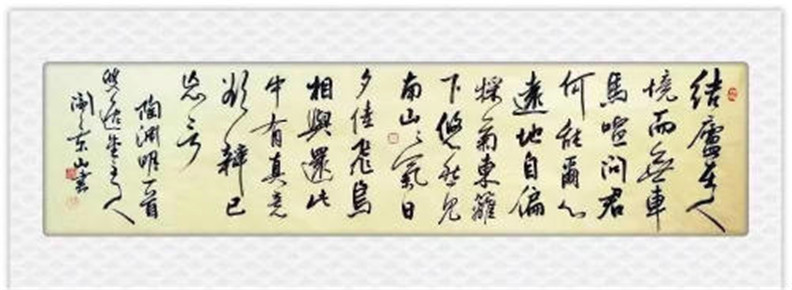 結廬在人
境而無車
馬喧問君
何能爾心
遠地自偏
採菊東籬
下悠然見
南山〻氣日
夕佳飛鳥
相與還此
中有真意
欲辯已
忘言
陶淵明一首
堂主人
東山書